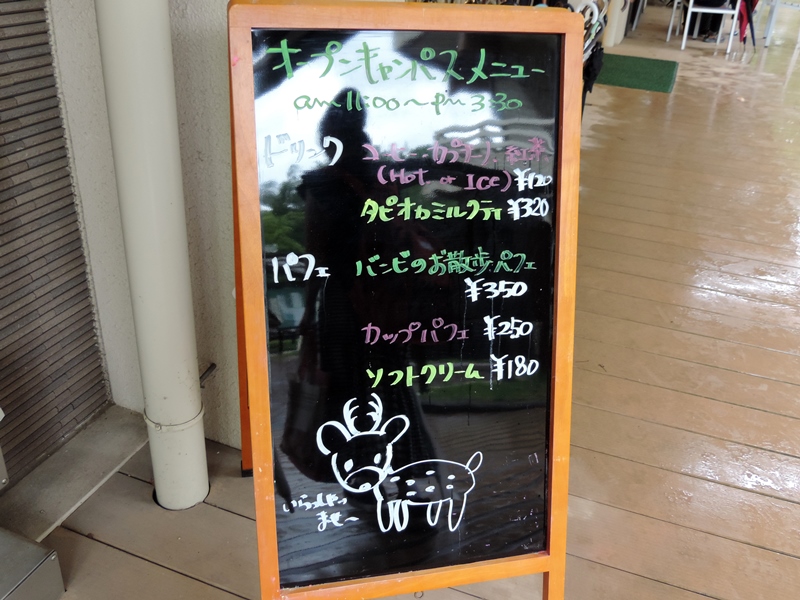 オープンキャンパスメニュー
am 11:00〜pm 3:30
ドリンク コーヒー・カプチーノ・紅茶
(Hot or Ice) ¥120
タピオカミルクティ ¥320
パフェ バンビのお散歩パフェ
¥350
カップパフェ ¥250
ソフトクリーム ¥180
いらっしゃい
ませ〜